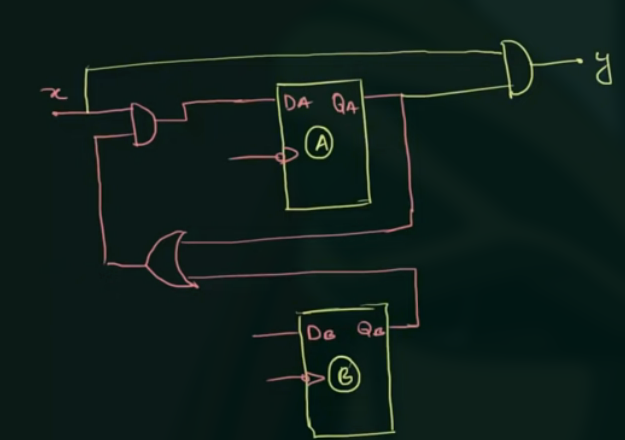 x
y
DA QA
A
DB QB
B